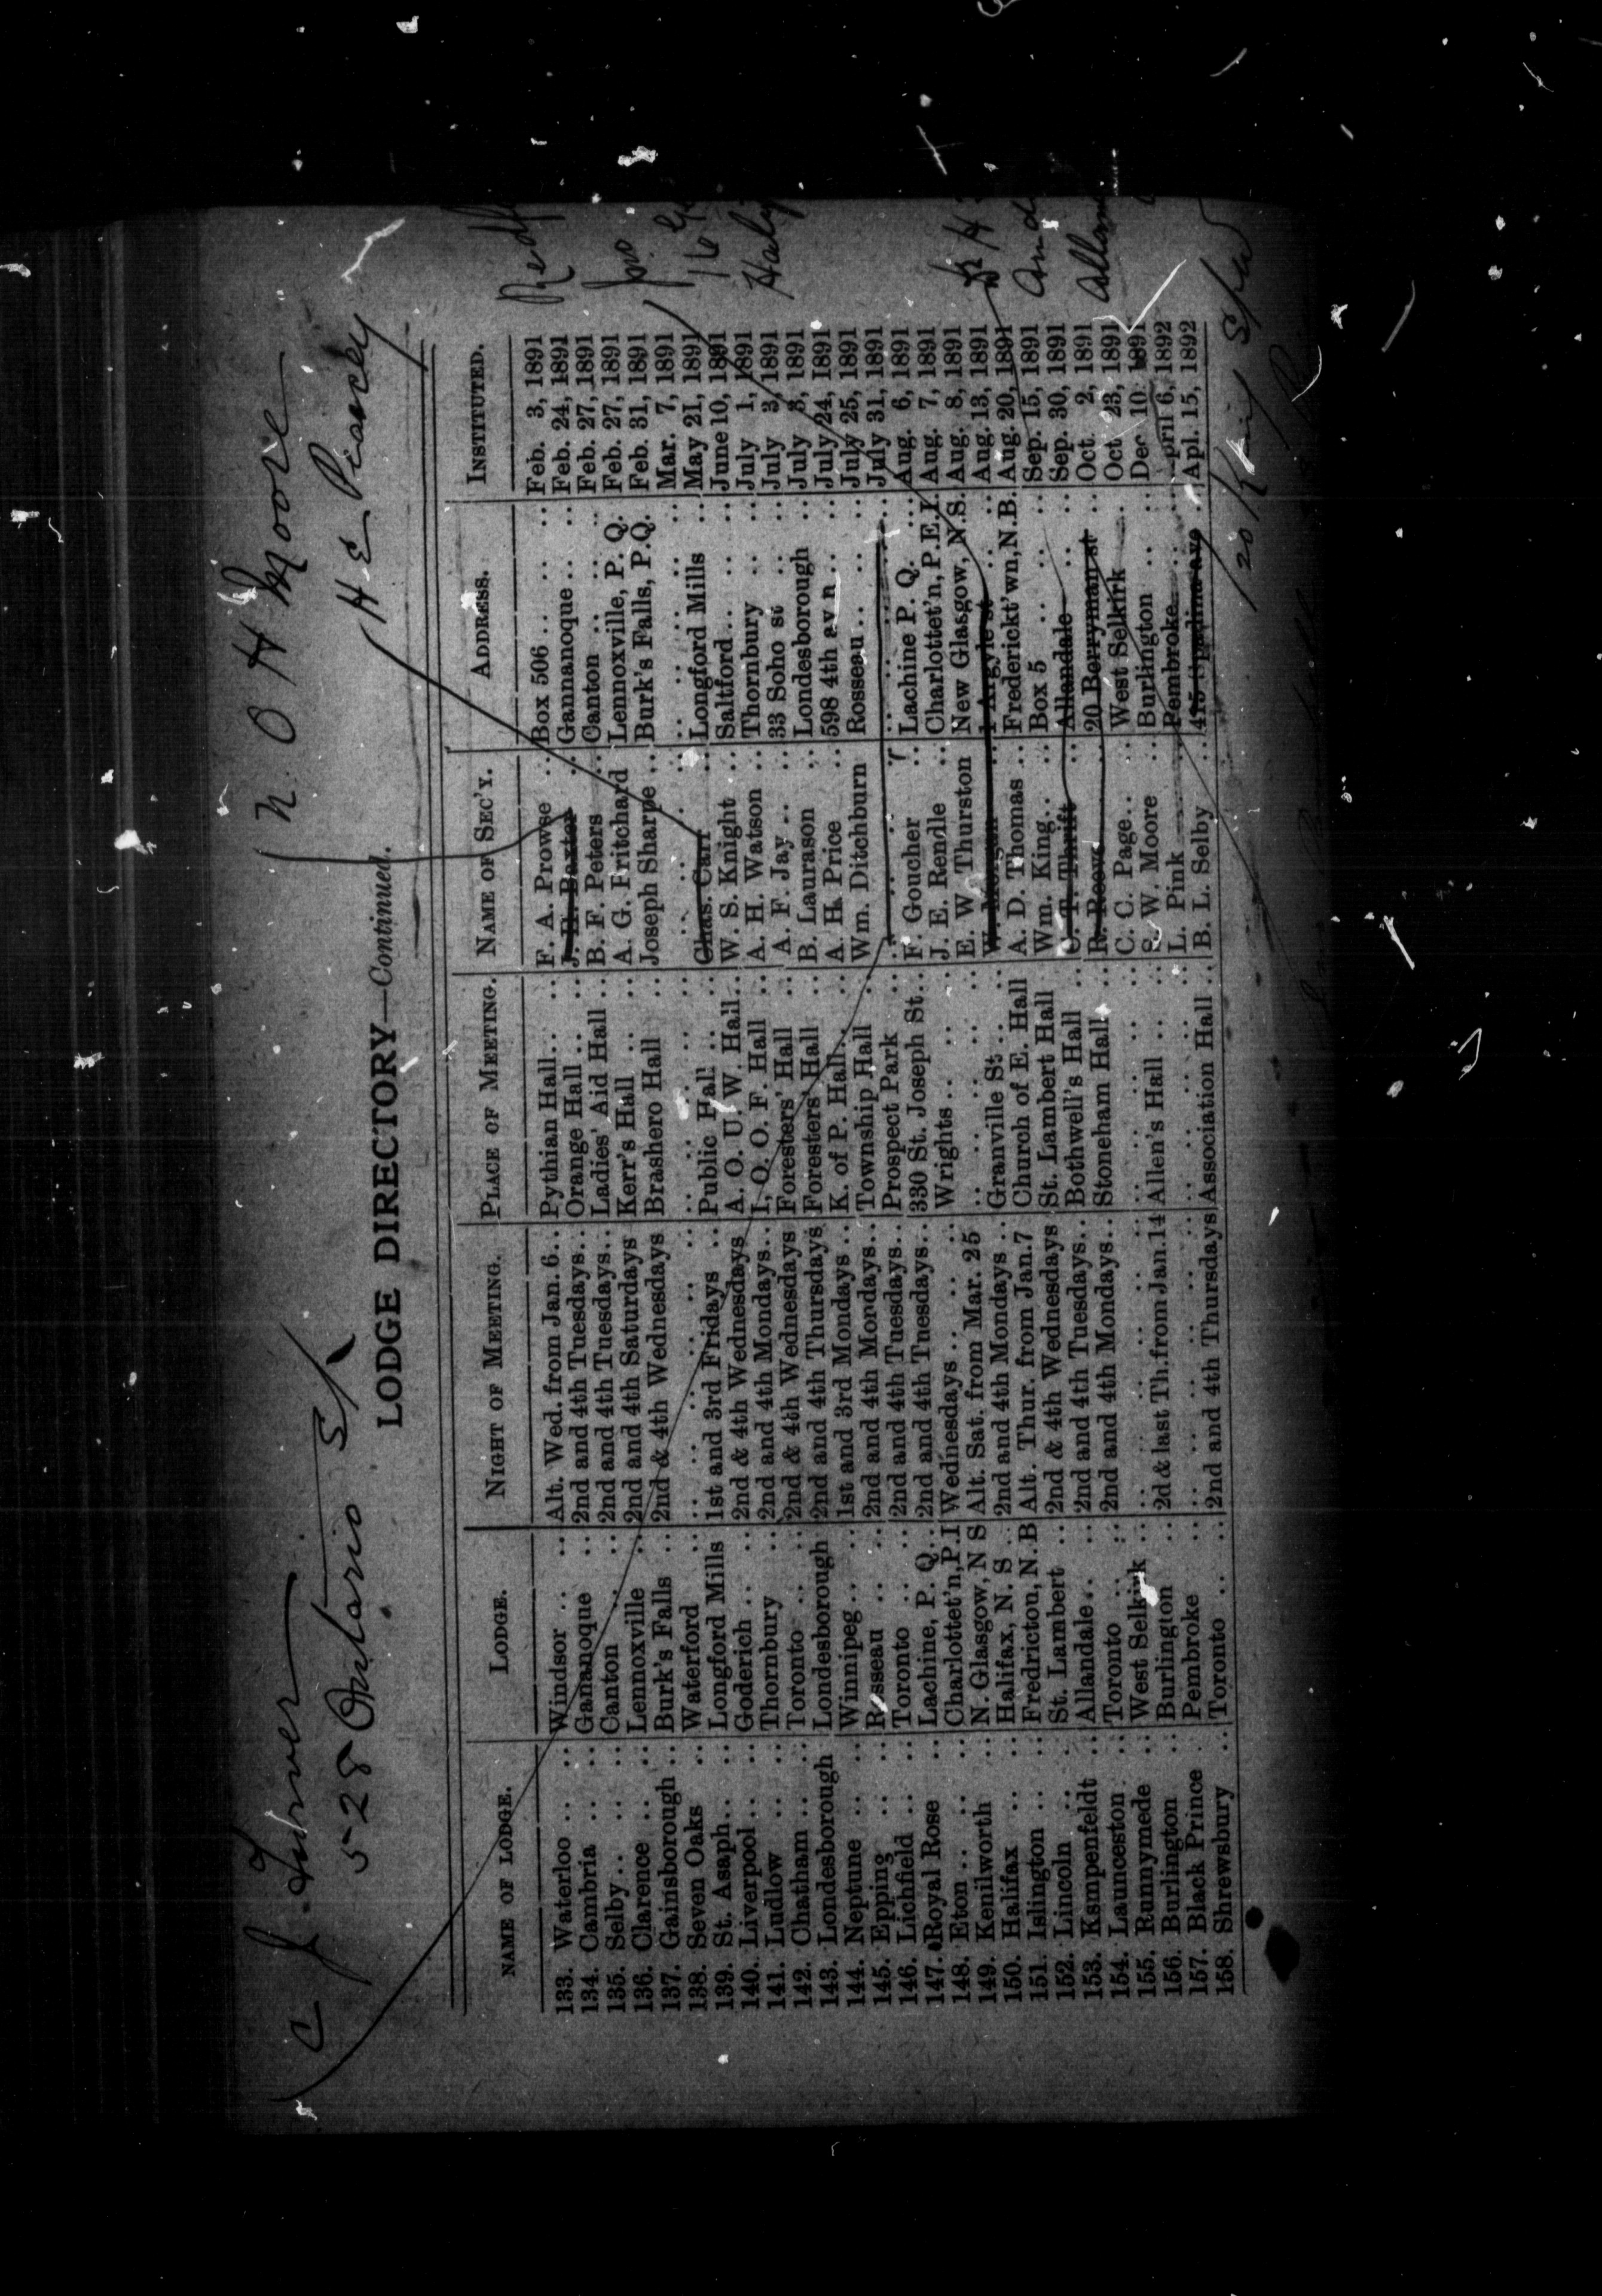 C J Turver
528 Ontario St
N. O H Moore
H. E. Piercey
LODGE DIRECTORY—Continued.
NAME OF LODGE. LODGE. NIGHT OF MEETING. PLACE OF MEETING. NAME OF SEC'Y. ADDRESS. INSTITUTED.
133. Waterloo .. .. Windsor .. .. Alt. Wed. from Jan. 6.. Pythian Hall.. .. F. A. Prowse .. Box 506 .. .. .. Feb. 3, 1891
134. Cambria .. .. Gananoque .. 2nd and 4th Tuesdays.. Orange Hall .. .. J. H. Baxter .. Gannanoque .. .. Feb. 24, 1891
135. Selby.. .. .. Canton .. .. 2nd and 4th Tuesdays.. Ladies' Aid Hall .. B. F. Peters .. Canton .. .. .. Feb. 27, 1891
136. Clarence .. .. Lennoxville .. 2nd and 4th Saturdays Kerr's Hall .. .. A. G. Pritchard Lennoxville, P. Q. Feb. 27, 1891
137. Gainsborough .. Burk's Falls .. 2nd & 4th Wednesdays Brashero Hall .. Joseph Sharpe .. Burk's Falls, P.Q. Feb. 31, 1891
138. Seven Oaks .. Waterford .. .. .. .. .. .. .. .. .. .. .. .. .. .. Mar. 7, 1891
139. St. Asaph.. .. Longford Mills 1st and 3rd Fridays .. Public Hall .. .. Chas. Carr .. Longford Mills .. May 21, 1891
140. Liverpool .. .. Goderich .. .. 2nd & 4th Wednesdays A. O. U. W. Hall.. W. S. Knight .. Saltford.. .. .. June 10, 1891
141. Ludlow .. .. Thornbury .. 2nd and 4th Mondays.. I. O. O. F. Hall .. A. H. Watson .. Thornbury .. .. July 1, 1891
142. Chatham .. .. Toronto .. .. 2nd & 4th Wednesdays Foresters' Hall .. A. F. Jay .. .. 33 Soho st .. .. July 3, 1891
143. Londesborough Londesborough 2nd and 4th Thursdays Foresters Hall .. B. Laurason .. Londesborough .. July 3, 1891
144. Neptune .. .. Winnipeg.. .. 1st and 3rd Mondays .. K. of P. Hall.. .. A H. Price .. 598 4th av n .. .. July 24, 1891
145. Epping .. .. Rosseau .. .. 2nd and 4th Mondays.. Township Hall .. Wm. Ditchburn Rosseau .. .. .. July 25, 1891
146. Lichfield .. .. Toronto .. .. 2nd and 4th Tuesdays.. Prospect Park .. .. .. .. .. .. .. July 31, 1891
147. Royal Rose .. Lachine, P. Q. .. 2nd and 4th Tuesdays.. 330 St. Joseph St.. F. Goucher .. Lachine P. Q. .. Aug. 6, 1891
148. Eton .. .. .. Charlottet'n, P.I Wednesdays .. .. .. Wrights .. .. .. J. E. Rendle .. Charlottet'n, P.E.I. Aug. 7, 1891
149. Kenilworth .. N. Glasgow, N S Alt. Sat. from Mar. 25 .. .. .. .. E. W. Thurston New Glasgow, N.S. Aug. 8, 1891
150. Halifax .. .. Halifax, N. S .. 2nd and 4th Mondays .. Granville St .. .. W. Morgan .. 1 Argyle st .. .. Aug. 13, 1891
151. Islington .. .. Fredricton, N. B Alt. Thur. from Jan. 7 Church of E. Hall A. D. Thomas .. Frederickt'wn, N.B. Aug. 20, 1891
152. Lincoln .. .. St. Lambert .. 2nd & 4th Wednesdays St. Lambert Hall Wm. King.. .. Box 5 .. .. .. Sep. 15, 1891
153. Kempenfeldt .. Allandale .. .. 2nd and 4th Tuesdays.. Bothwell's Hall .. C. T. Thrift .. Allandale .. .. Sep. 30, 1891
154. Launceston .. Toronto .. .. 2nd and 4th Mondays.. Stoneham Hall.. R. Reeve .. 20 Berryman st .. Oct. 2, 1891
155. Runnymede .. West Selkirk .. .. .. .. .. .. .. .. C. C. Page.. .. West Selkirk .. Oct 23, 1891
156. Burlington .. Burlington .. 2d & last Th. from Jan. 14 Allen's Hall .. .. S. W. Moore .. Burlington .. .. Dec 10. 1891
157. Black Prince .. Pembroke .. .. .. .. .. .. .. .. L. Pink .. Pembroke.. .. April 6, 1892
158. Shrewsbury .. Toronto .. .. 2nd and 4th Thursdays Association Hall .. B. L. Selby .. 415 Spadina ave .. Apl. 15, 1892
Jno.
16
And
120 King St